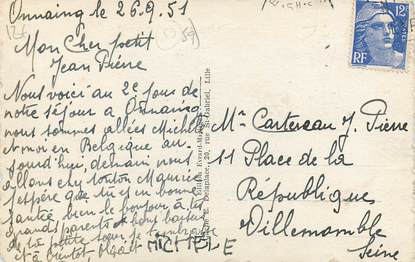 Onnaing le 26.9.51
Mon Cher petit
Jean Pierre
Nous voici au 2e jour de
notre séjour a Onnaing
nous sommes allées Michèle
et moi en Belgique au-
jourd'hui, demain nous
allons chez tonton Maurice
j'espère que tu es en bonne
santée bien le bonjour à tes
grands parents et bons baisers
de ta petite soeur je t'embrasse
et à bientôt
MICHELE
Mr Cartereau J. Pierre
11 Place de la
République
Villemomble
Seine
20, rue St-Gabriel, Lille
12F
RF